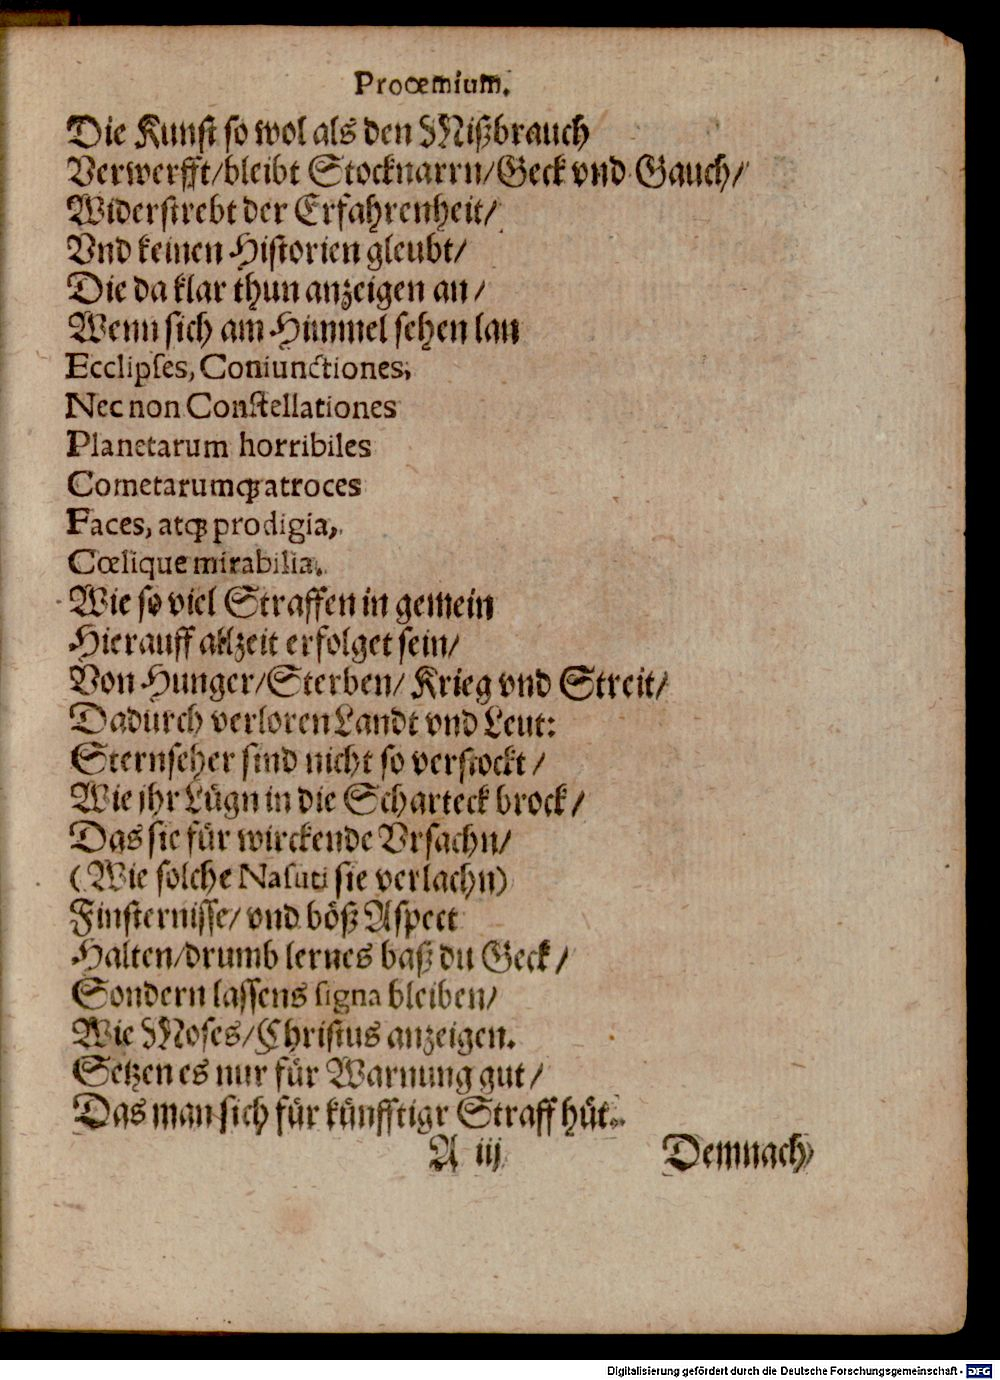 Proœmium.
Die Kunst so wol als den Mißbrauch
Verwerfft/bleibt Stocknarrn/Geck vnd Gauch/
Widerstrebt der Erfahrenheit/
Vnd keinen Historien gleubt/
Die da klar thun anzeigen an/
Wenn sich am Himmel sehen lan
Ecclipses, Coniunctiones,
Nec non Constellationes
Planetarum horribiles
Cometarumꝙ atroces
Faces, atꝙ prodigia,
Cœlique mirabilia.
Wie so viel Straffen in gemein
Hierauff allzeit erfolget sein/
Von Hunger/Sterben/ Krieg vnd Streit/
Dadurch verloren Landt vnd Leut:
Sternseher sind nicht so verstockt/
Wie jhr Lügn in die Scharteck brock/
Das sie für wirckende Vrsachn/
(Wie solche Nasuti sie verlachn)
Finsternisse/ vnd böß Aspect
Halten/drumb lernes baß du Geck/
Sondern lassens signa bleiben/
Wie Moses/Christus anzeigen.
Setzen es nur für Warnung gut/
Das man sich für künfftigr Straff hüt.
A iij Demnach
Digitalisierung gefördert durch die Deutsche Forschungsgemeinschaft - DFG